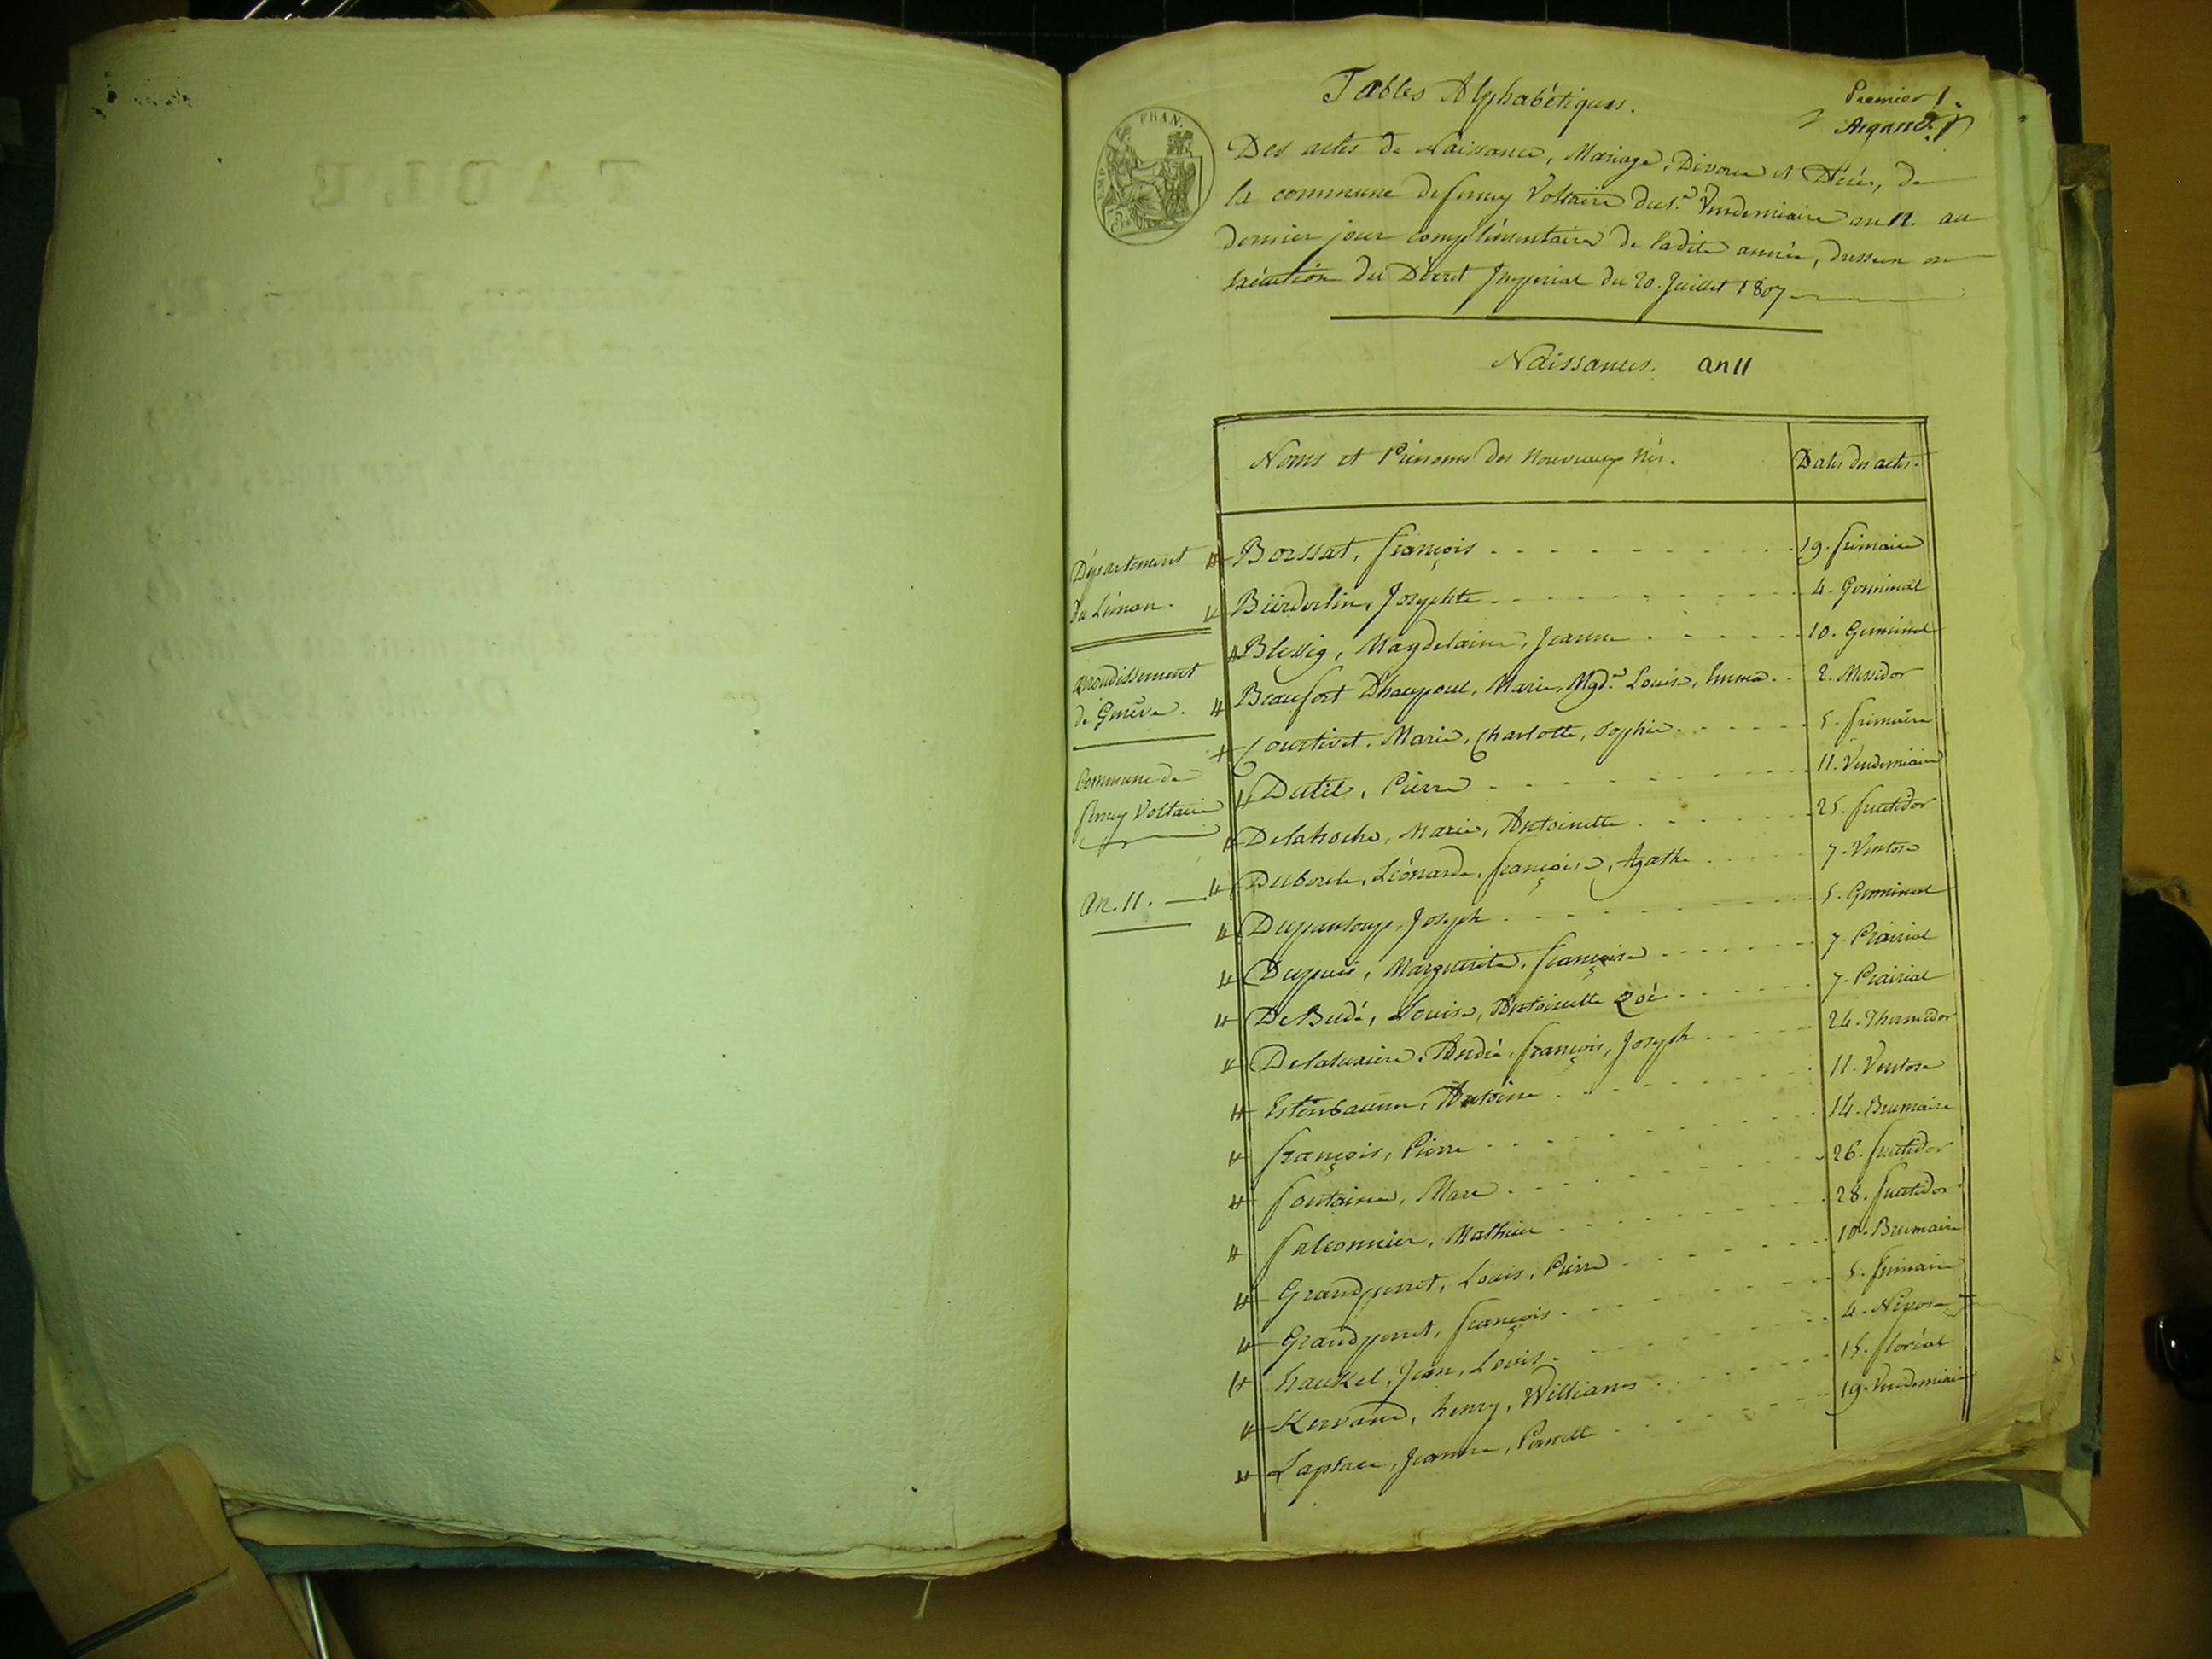 Tables Alphabétiques.
Premier 1.
Argand
IMP. FRAN.
Des actes de Naissance, Mariage, Divorce et Décès, de
la commune de ferney Voltaire du 1.er Vendemiaire an 11. au
dernier jour complémentaire de ladite année, dressées en
Exécution du Décret Imperial du 20. Juillet 1807
Naissances. an 11
Noms et Prénoms des Nouveaux Nés.
Dates des actes.
Département
du Léman.
arrondissement
de Genève.
Commune de
ferney Voltaire
An. 11.
Borssat, françois 19. frimaire
Bürderlin, Josephte 4. Germinal
Blessig, Magdelaine, Jeanne 10. Germinal
Beaufort Dhaupoul, Marie, Mgd.ne Louise, Emma 2. Messidor
Courtivet. Marie, Charlotte, Sophie 5. frimaire
Dutil, Pierre 11. Vendemiaire
Delahoche, Marie, Antoinette 25. fructidor
Léonarde, françoise, Agathe 7. Ventose
Dupanloup, Joseph 5. Germinal
Dupuis, Marguerite, françoise 7. Prairial
De Budé, Louise, Antoinette Zoé 7. Prairial
André, françois, Joseph 24. Thermidor
Antoine 11. Ventose
françois, Pierre 14. Brumaire
fontaine, Marc 26. fructidor
falconnier, Mathieu 28. fructidor
Grandperret, Louis, Pierre 10. Brumaire
Grandperret, françois 5. frimaire
hauskel, Jean, Louis 4. Nivose
henry, Williams 15. floréal
Laplace, Jeanne, Pernette 19. Vendemiaire
TABLE